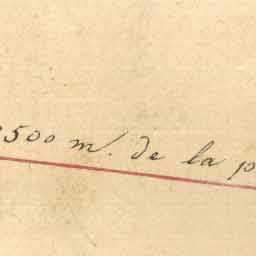 500 m. de la p